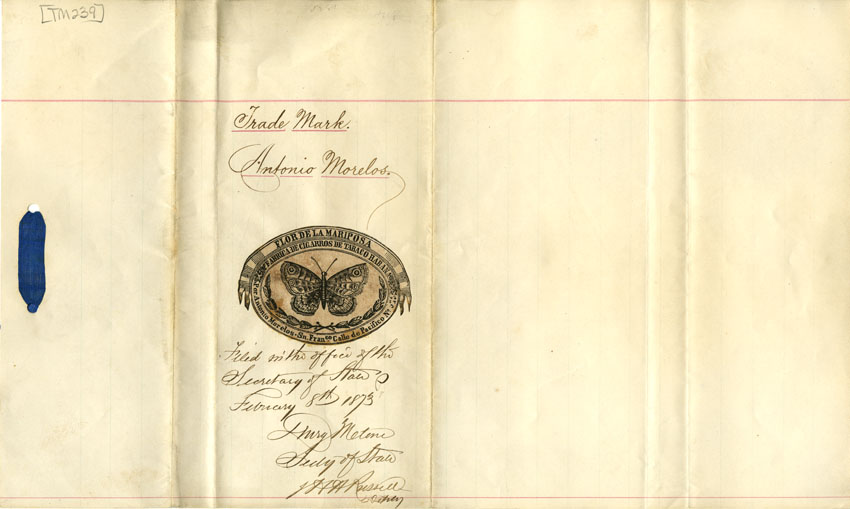 [TM239]
Trade Mark.
Antonio Morelos.
FLOR DE LA MARIPOSA
FABRICA DE CIGARROS DE TABACO HABANO
Antonio Morelos. Sn. Franco Calle de Pacifico No
Filed in the office of the
Secretary of State
February 8th 1873
Drury Melone
Secy of State
Russell
Deputy